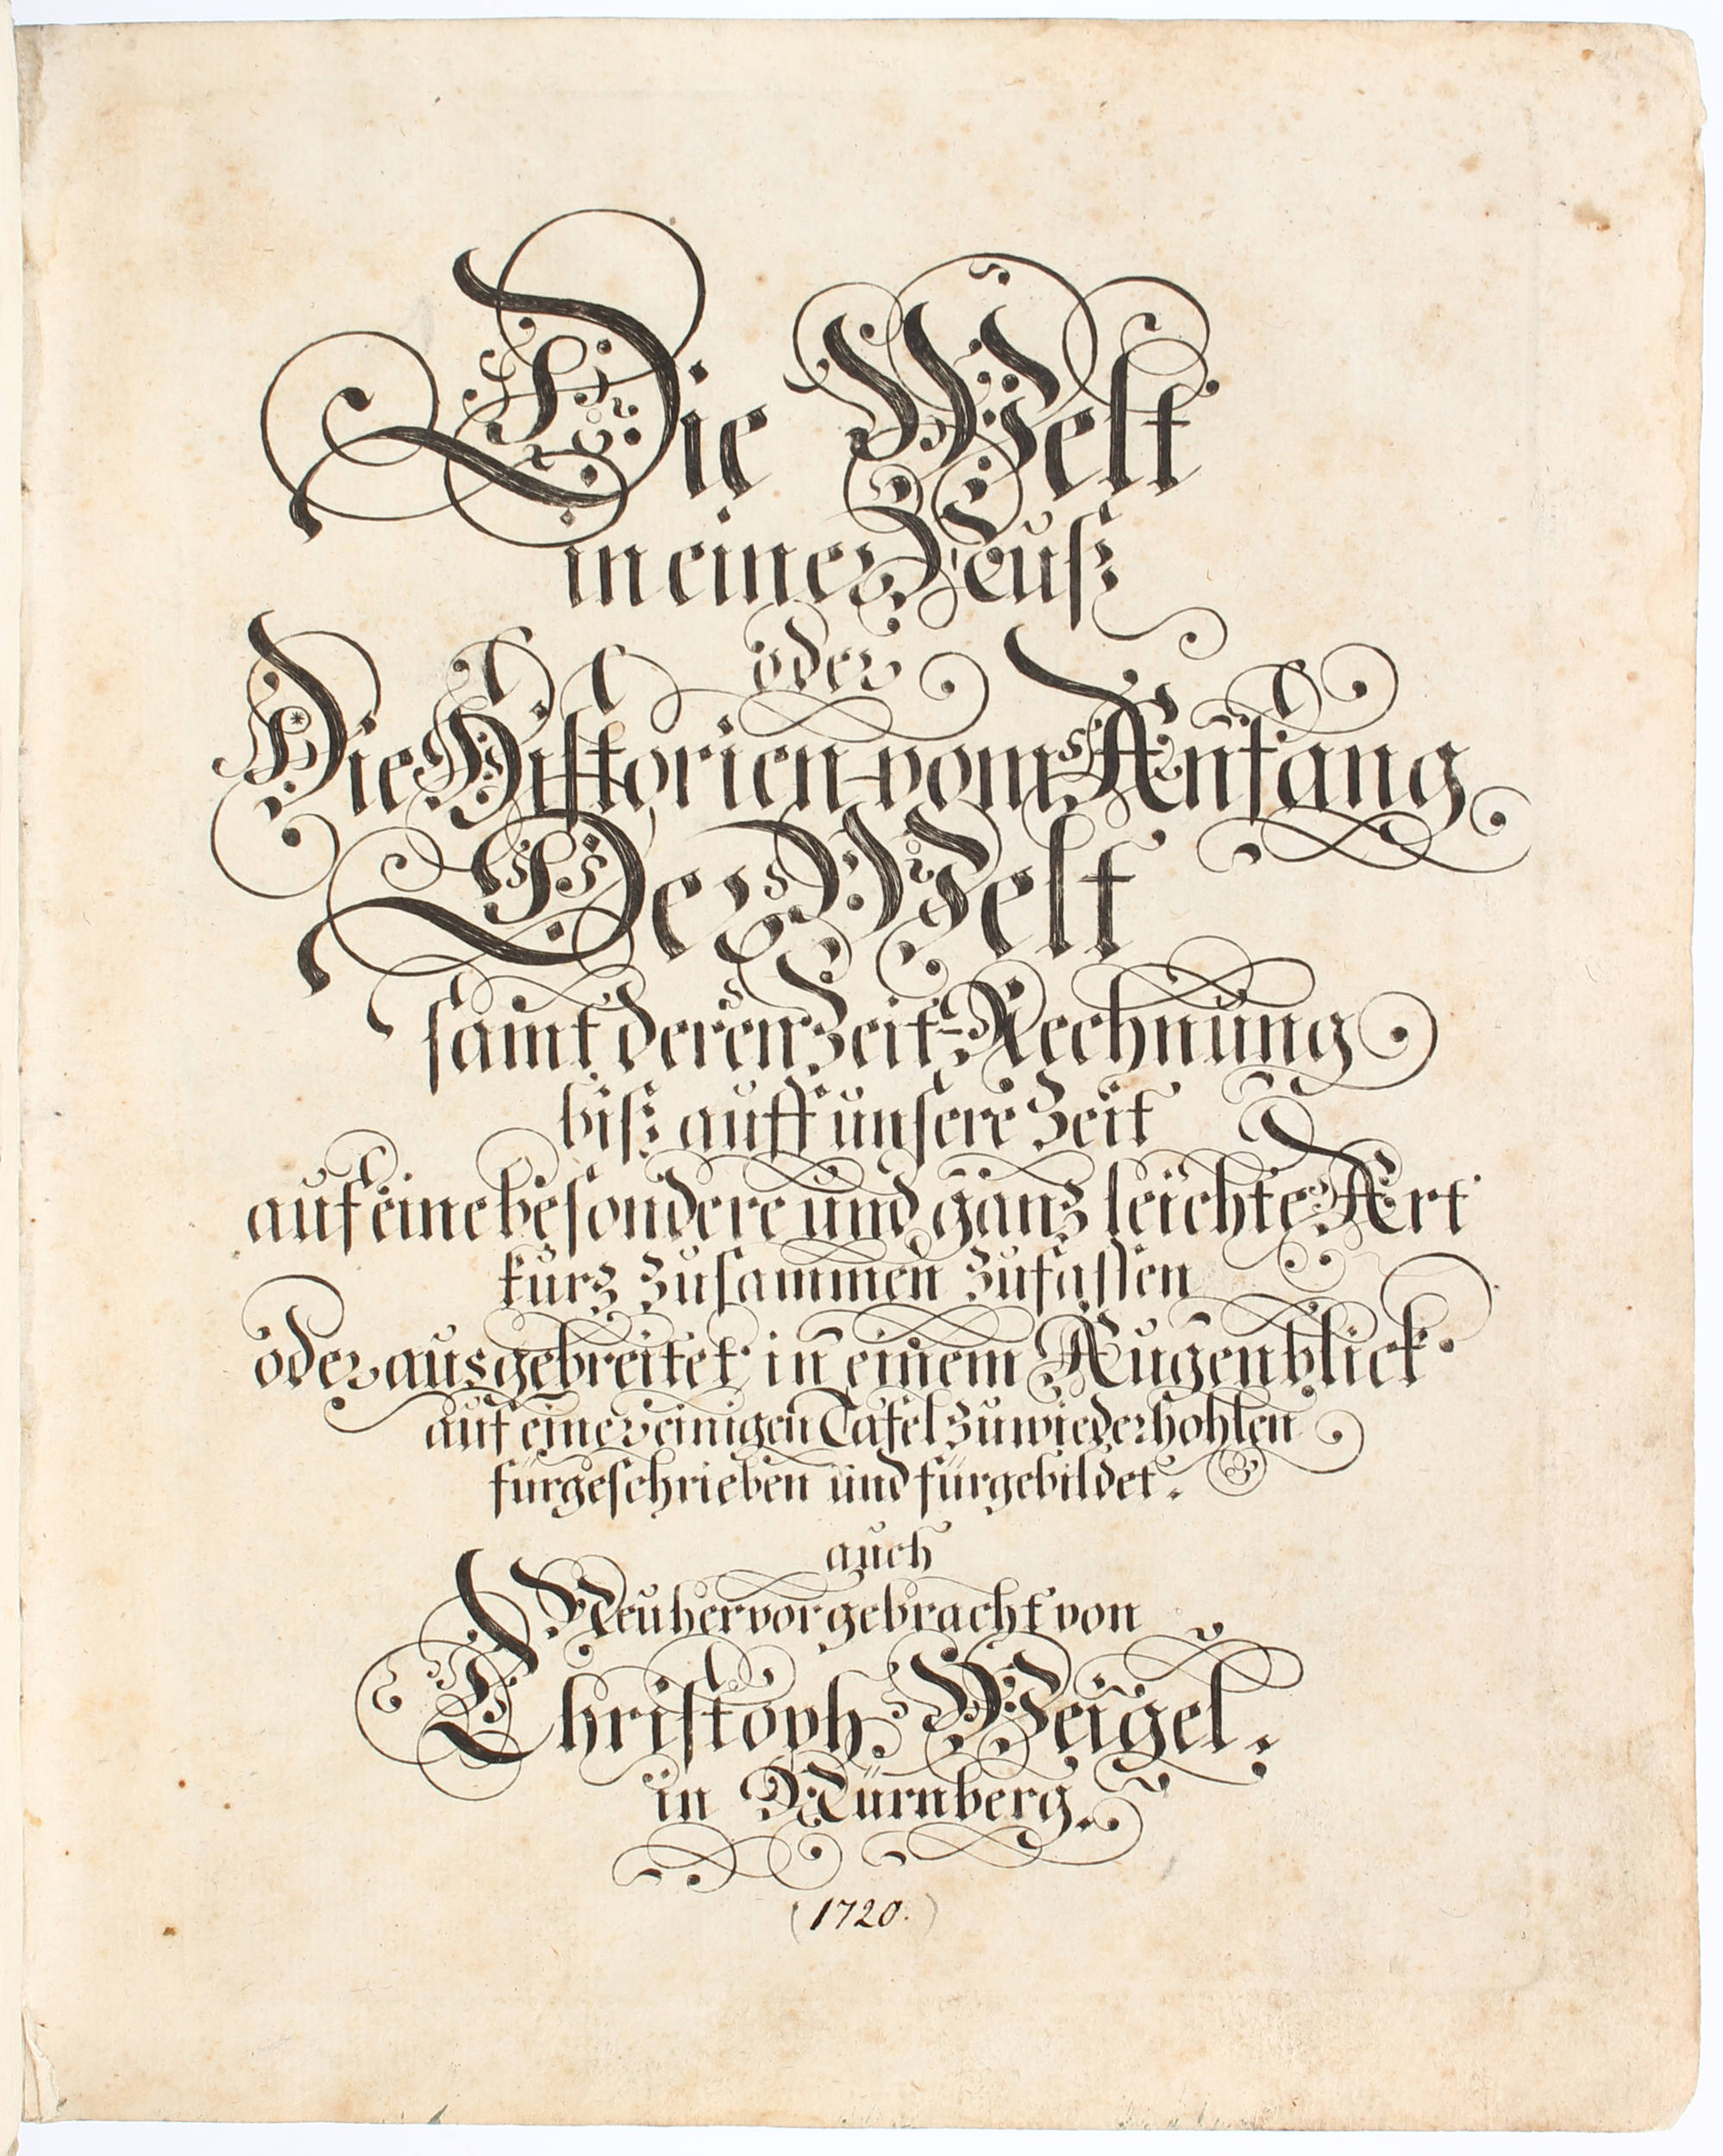 Die Welt
in einer Neuß
oder
Die Historien vom Anfang
Der Welt
samt deren Zeit-Rechnung
biß auff unsere Zeit
auf eine besondere und ganz leichte Art
kurz zusammen zufassen
oder ausgebreitet in einem Augenblick
auf einer einigen Tafel zuwiederhohlen
fürgeschrieben und fürgebildet.
auch
Neu hervorgebracht von
Christoph Weigel.
in Nürnberg.
(1720.)